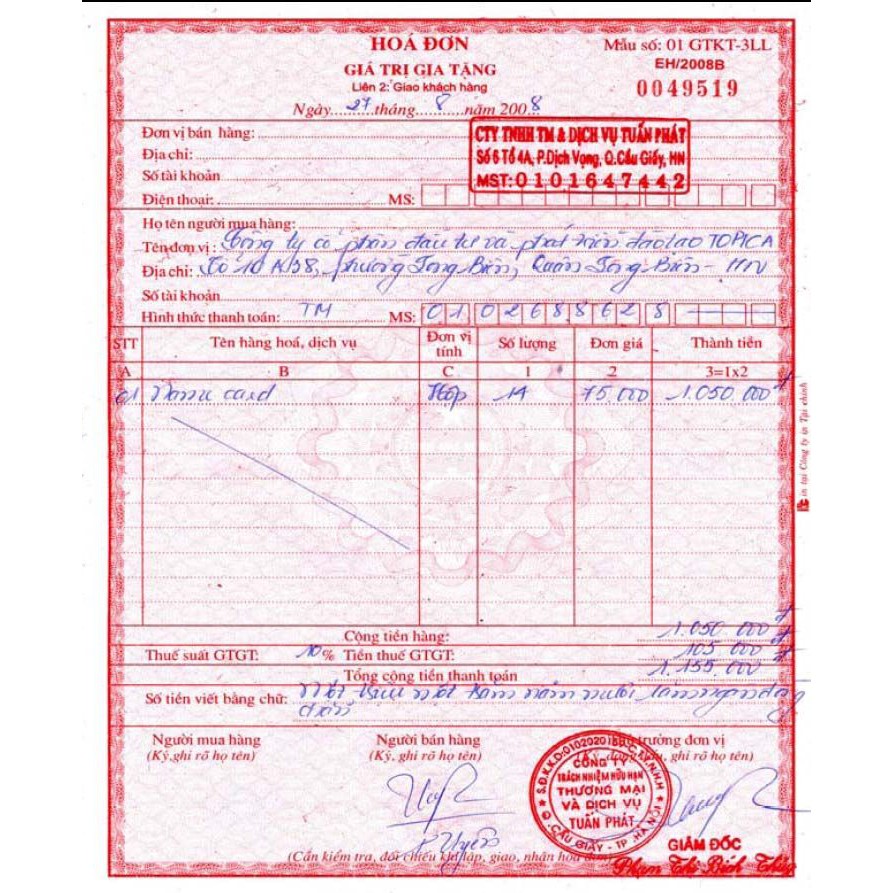 HOÁ ĐƠN
GIÁ TRỊ GIA TĂNG
Liên 2: Giao khách hàng
Ngày 27 tháng 8 năm 2008
Mẫu số: 01 GTKT-3LL
EH/2008B
0049519
Đơn vị bán hàng:
Địa chỉ:
Số tài khoản
Điện thoại: MS:
CTY TNHH TM & DỊCH VỤ TUẤN PHÁT
Số 6 Tổ 4A, P.Dịch Vọng, Q.Cầu Giấy, HN
MST: 0101647442
Họ tên người mua hàng:
Tên đơn vị: Công ty cổ phần đầu tư và phát triển đào tạo TOPICA
Địa chỉ: Số 10 A38, phường Long Biên, Quận Long Biên - HN
Số tài khoản
Hình thức thanh toán: TM MS: 0102688628
STT Tên hàng hoá, dịch vụ Đơn vị tính Số lượng Đơn giá Thành tiền
A B C 1 2 3=1x2
01 Name card Hộp 14 75.000 1.050.000đ
Cộng tiền hàng: 1.050.000đ
Thuế suất GTGT: 10% Tiền thuế GTGT: 105.000đ
Tổng cộng tiền thanh toán 1.155.000
Số tiền viết bằng chữ: Một triệu một trăm năm mươi lăm ngàn đồng
chẵn
Người mua hàng Người bán hàng Thủ trưởng đơn vị
(Ký,ghi rõ họ tên) (Ký, ghi rõ họ tên) ghi rõ họ tên)
S.Đ.K.K.D:
CÔNG TY
TRÁCH NHIỆM HỮU HẠN
THƯƠNG MẠI
VÀ DỊCH VỤ
TUẤN PHÁT
Q. CẦU GIẤY - TP. HÀ NỘI
GIÁM ĐỐC
Phạm Thị Bích Thủy
(Cần kiểm tra, đối chiếu khi lập, giao, nhận hoá đơn)
in tại Công ty in Tài chính